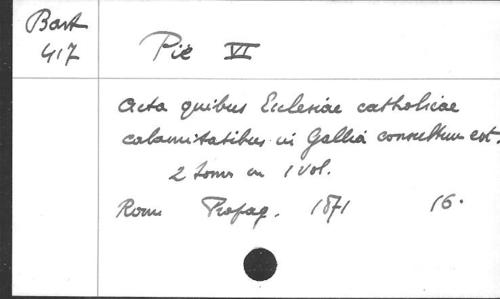 Bart
417
Pie VI
Acta quibus Ecclesiae catholicae
calamitatibus in Gallia consultum est.
2 toms en 1 vol.
Rom Propag. 1871 16.